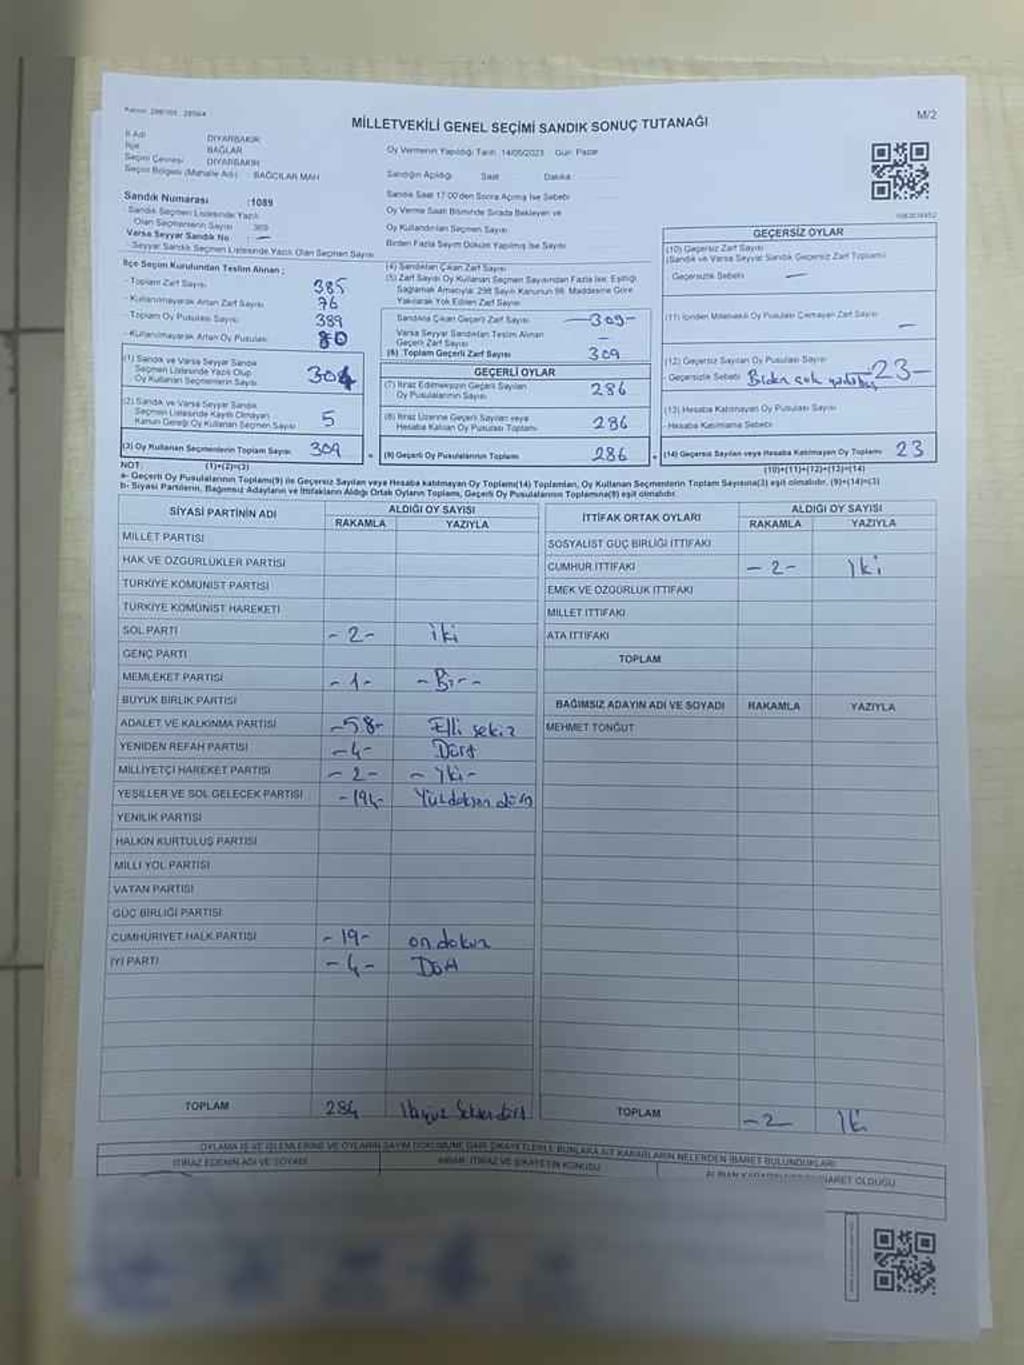 M/2
MİLLETVEKİLİ GENEL SEÇİMİ SANDIK SONUÇ TUTANAĞI
İl Adı DİYARBAKIR
İlçe BAĞLAR
Seçim Çevresi DİYARBAKIR
Seçim Bölgesi (Mahalle Adı) : BAĞCILAR MAH
Oy Vermenin Yapıldığı Tarih: 14/05/2023 Gün: Pazar
Sandığın Açıldığı Saat Dakika
Sandık Saat 17:00'den Sonra Açılmış İse Sebebi
Oy Verme Saati Bitiminde Sırada Bekleyen ve
Oy Kullandırılan Seçmen Sayısı
Birden Fazla Sayım Döküm Yapılmış İse Sayısı
Sandık Numarası :1089
Sandık Seçmen Listesinde Yazılı
Olan Seçmenlerin Sayısı : 369
Varsa Seyyar Sandık No : —
Seyyar Sandık Seçmen Listesinde Yazılı Olan Seçmen Sayısı
İlçe Seçim Kurulundan Teslim Alınan ;
- Toplam Zarf Sayısı 385
- Kullanılmayarak Artan Zarf Sayısı 76
- Toplam Oy Pusulası Sayısı 389
- Kullanılmayarak Artan Oy Pusulası 80
(1) Sandık ve Varsa Seyyar Sandık
Seçmen Listesinde Yazılı Olup
Oy Kullanan Seçmenlerin Sayısı 304
(2) Sandık ve Varsa Seyyar Sandık
Seçmen Listesinde Kayıtlı Olmayan
Kanun Gereği Oy Kullanan Seçmen Sayısı 5
(3) Oy Kullanan Seçmenlerin Toplam Sayısı 309
(1)+(2)=(3)
(4) Sandıktan Çıkan Zarf Sayısı
(5) Zarf Sayısı Oy Kullanan Seçmen Sayısından Fazla İse, Eşitliği
Sağlamak Amacıyla; 298 Sayılı Kanunun 98. Maddesine Göre
Yakılarak Yok Edilen Zarf Sayısı
Sandıkta Çıkan Geçerli Zarf Sayısı —309-
Varsa Seyyar Sandıktan Teslim Alınan
Geçerli Zarf Sayısı —
(6) Toplam Geçerli Zarf Sayısı 309
GEÇERLİ OYLAR
(7) İtiraz Edilmeksizin Geçerli Sayılan
Oy Pusulalarının Sayısı 286
(8) İtiraz Üzerine Geçerli Sayılan veya
Hesaba Katılan Oy Pusulası Toplamı 286
(9) Geçerli Oy Pusulalarının Toplamı 286
GEÇERSİZ OYLAR
(10) Geçersiz Zarf Sayısı
(Sandık ve Varsa Seyyar Sandık Geçersiz Zarf Toplamı)
- Geçersizlik Sebebi —
(11) İçinden Milletvekili Oy Pusulası Çıkmayan Zarf Sayısı —
(12) Geçersiz Sayılan Oy Pusulası Sayısı -23-
- Geçersizlik Sebebi
(13) Hesaba Katılmayan Oy Pusulası Sayısı
- Hesaba Katılmama Sebebi
(14) Geçersiz Sayılan veya Hesaba Katılmayan Oy Toplamı 23
(10)+(11)+(12)+(13)=(14)
NOT:
a- Geçerli Oy Pusulalarının Toplamı(9) ile Geçersiz Sayılan veya Hesaba katılmayan Oy Toplamı(14) Toplamları, Oy Kullanan Seçmenlerin Toplam Sayısına(3) eşit olmalıdır. (9)+(14)=(3)
b- Siyasi Partilerin, Bağımsız Adayların ve İttifakların Aldığı Ortak Oyların Toplamı, Geçerli Oy Pusulalarının Toplamına(9) eşit olmalıdır.
SİYASİ PARTİNİN ADI ALDIĞI OY SAYISI
RAKAMLA YAZIYLA
MİLLET PARTİSİ
HAK VE ÖZGÜRLÜKLER PARTİSİ
TÜRKİYE KOMÜNİST PARTİSİ
TÜRKİYE KOMÜNİST HAREKETİ
SOL PARTİ -2- iki
GENÇ PARTİ
MEMLEKET PARTİSİ -1- -Bir-
BÜYÜK BİRLİK PARTİSİ
ADALET VE KALKINMA PARTİSİ -58- Elli sekiz
YENİDEN REFAH PARTİSİ -4- Dört
MİLLİYETÇİ HAREKET PARTİSİ -2- -iki-
YEŞİLLER VE SOL GELECEK PARTİSİ -194- Yüzdoksan dört
YENİLİK PARTİSİ
HALKIN KURTULUŞ PARTİSİ
MİLLİ YOL PARTİSİ
VATAN PARTİSİ
GÜÇ BİRLİĞİ PARTİSİ
CUMHURİYET HALK PARTİSİ -19- on dokuz
İYİ PARTİ -4- Dört
TOPLAM 284 ikiyüz Seksen dört
İTTİFAK ORTAK OYLARI ALDIĞI OY SAYISI
RAKAMLA YAZIYLA
SOSYALİST GÜÇ BİRLİĞİ İTTİFAKI
CUMHUR İTTİFAKI -2- iki
EMEK VE ÖZGÜRLÜK İTTİFAKI
MİLLET İTTİFAKI
ATA İTTİFAKI
TOPLAM
BAĞIMSIZ ADAYIN ADI VE SOYADI RAKAMLA YAZIYLA
MEHMET TONĞUT
TOPLAM -2- iki
OYLAMA İŞ VE İŞLEMLERİNE VE OYLARIN SAYIM DÖKÜMÜNE DAİR ŞİKAYETLERLE BUNLARA AİT KARARLARIN NELERDEN İBARET BULUNDUKLARI
İTİRAZ EDENİN ADI VE SOYADI
İTİRAZ VE ŞİKAYETİN KONUSU